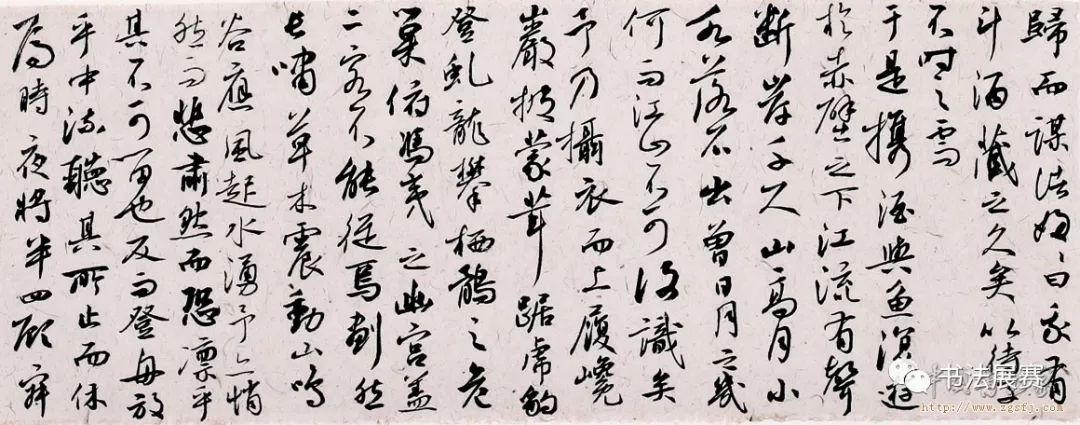 歸而謀諸婦婦曰我有
斗酒藏之久矣以待子
不時之需
于是携酒與魚復遊
於赤壁之下江流有聲
斷岸千尺山高月小
水落石出曾日月之幾
何而江山不可復識矣
予乃攝衣而上履巉
巖披蒙茸踞虎豹
登虬龍攀栖鶻之危
巢俯馮夷之幽宮蓋
二客不能從焉劃然
長嘯草木震動山鳴
谷應風起水湧予亦悄
然而悲肅然而恐凜乎
其不可留也反而登舟放
乎中流聽其所止而休
焉時夜將半四顧寂
书法展赛
http://www.zgsfj.com